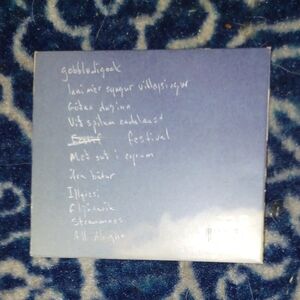 gobbledigook
inní mér syngur vitleysingur
Góðan daginn
Við spilum endalaust
festival
Með suð í eyrum
Ára bátur
Illgresi
Fljótavík
Straumnes
All alright